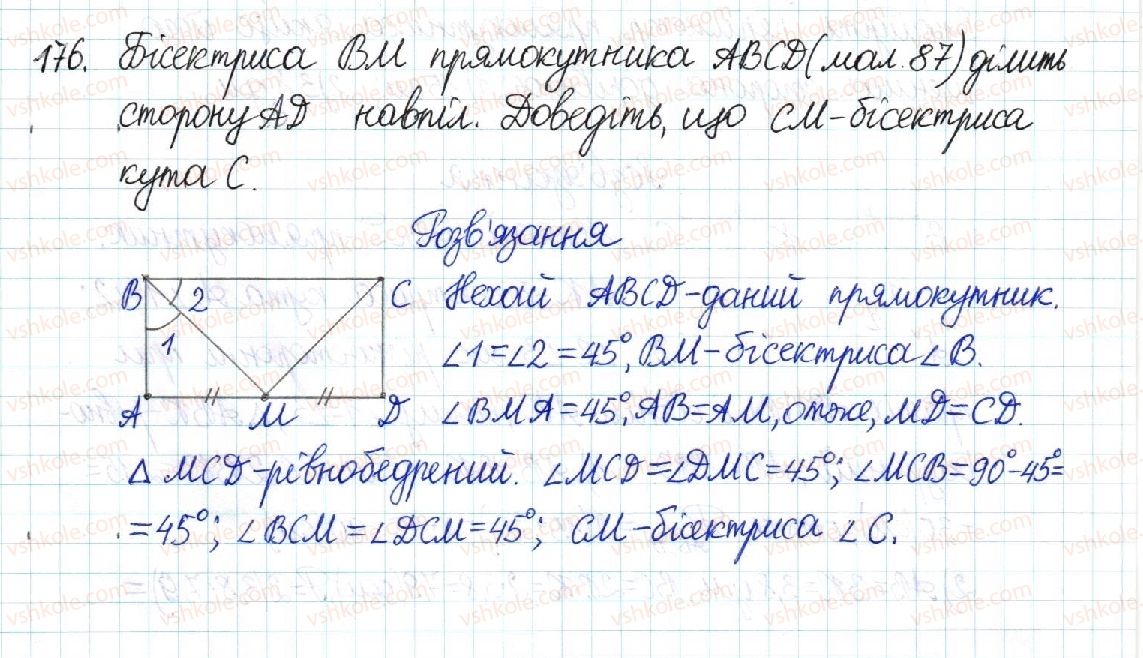 176. Бісектриса BM прямокутника ABCD (мал. 87) ділить
сторону AD навпіл. Доведіть, що CM - бісектриса
кута C.
Розв'язання
B 2 C
1
A M D
Нехай ABCD - даний прямокутник.
∠1 = ∠2 = 45°, BM - бісектриса ∠B.
∠BMA = 45°, AB = AM, отже, MD = CD.
△ MCD - рівнобедрений. ∠MCD = ∠DMC = 45°; ∠MCB = 90° - 45° =
= 45°; ∠BCM = ∠DCM = 45°; CM - бісектриса ∠C.
vshkole.com